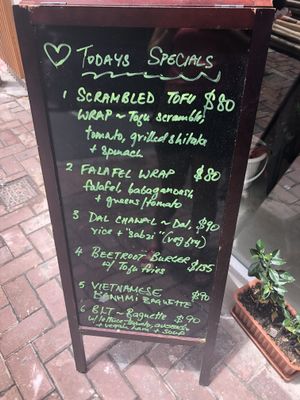 TODAYS SPECIALS
1 SCRAMBLED TOFU $80
WRAP ~ Tofu scramble,
tomato, grilled shitake
+ spinach
2 FALAFEL WRAP $80
falafel, babaganoush
+ greens/tomato
3 DAL CHAWAL ~ Dal, $90
rice + "sabzi" (veg fry)
4 BEETROOT BURGER
w/ Tofu fries $135
5 VIETNAMESE
BANHMI BAGUETTE $90
6 BLT ~ Baguette $90
w/ lettuce, tomato, avocado
+ vegan ham + soup